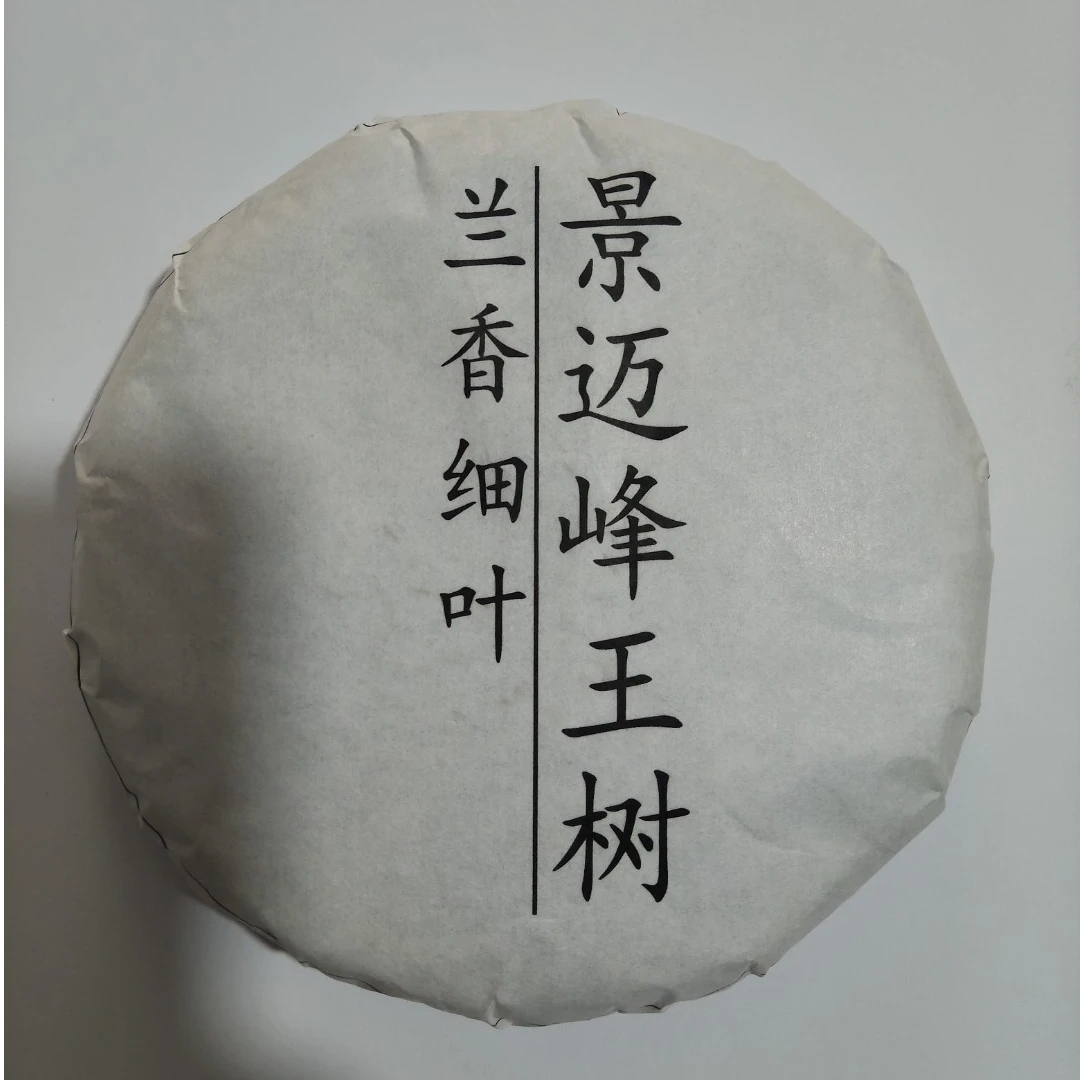 景迈峰王树
兰香细叶